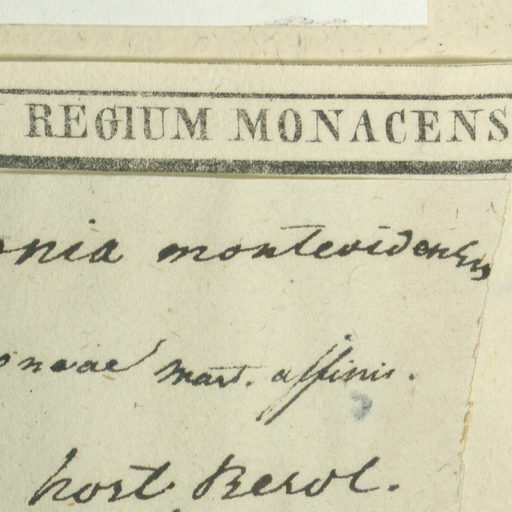 REGIUM MONACENS
onia montevidensis
onaae Mart. affinis.
hort. Berol.